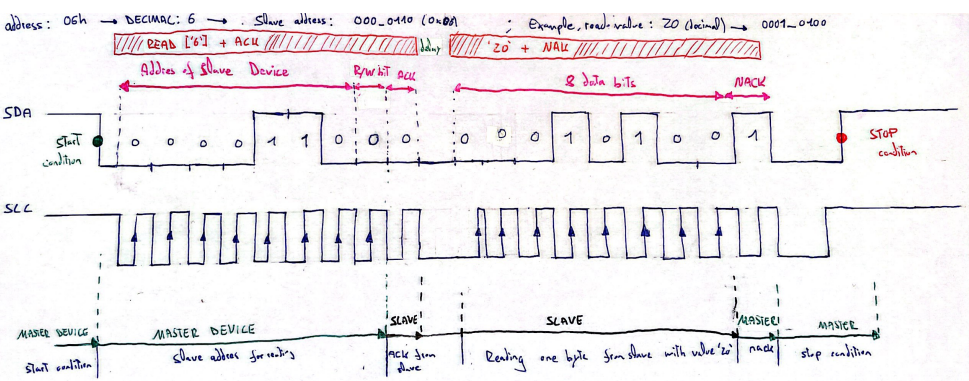 address: 06h → DECIMAL: 6 → Slave address: 000_0110 (0x06) ; Example, read value: 20 (decimal) → 0001_0100
READ ['6'] + ACK delay '20' + NAK
Addres of Slave Device R/W bit ACK 8 data bits NACK
SDA
Start condition 0 0 0 0 1 1 0 0 0 0 0 0 1 0 1 0 0 1 STOP condition
SCL
MASTER DEVICE MASTER DEVICE SLAVE SLAVE MASTER MASTER
start condition Slave address for reading ACK from slave Reading one byte from slave with value '20' nack stop condition